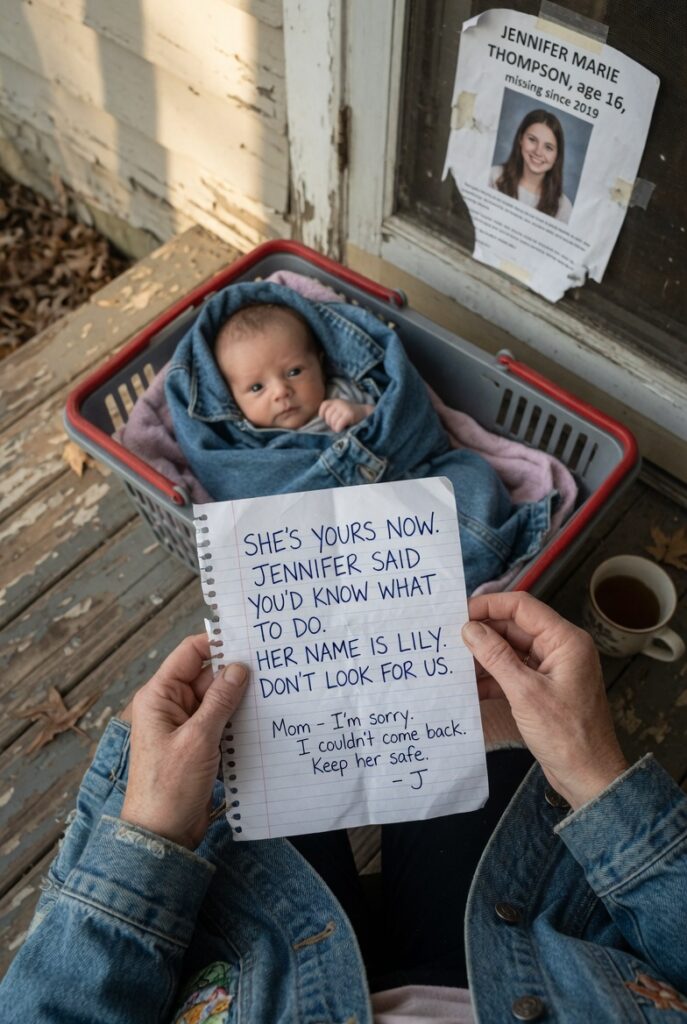 JENNIFER MARIE
THOMPSON, age 16,
missing since 2019
SHE'S YOURS NOW.
JENNIFER SAID
YOU'D KNOW WHAT
TO DO.
HER NAME IS LILY.
DON'T LOOK FOR US.
Mom – I'm sorry.
I couldn't come back.
Keep her safe.
– J